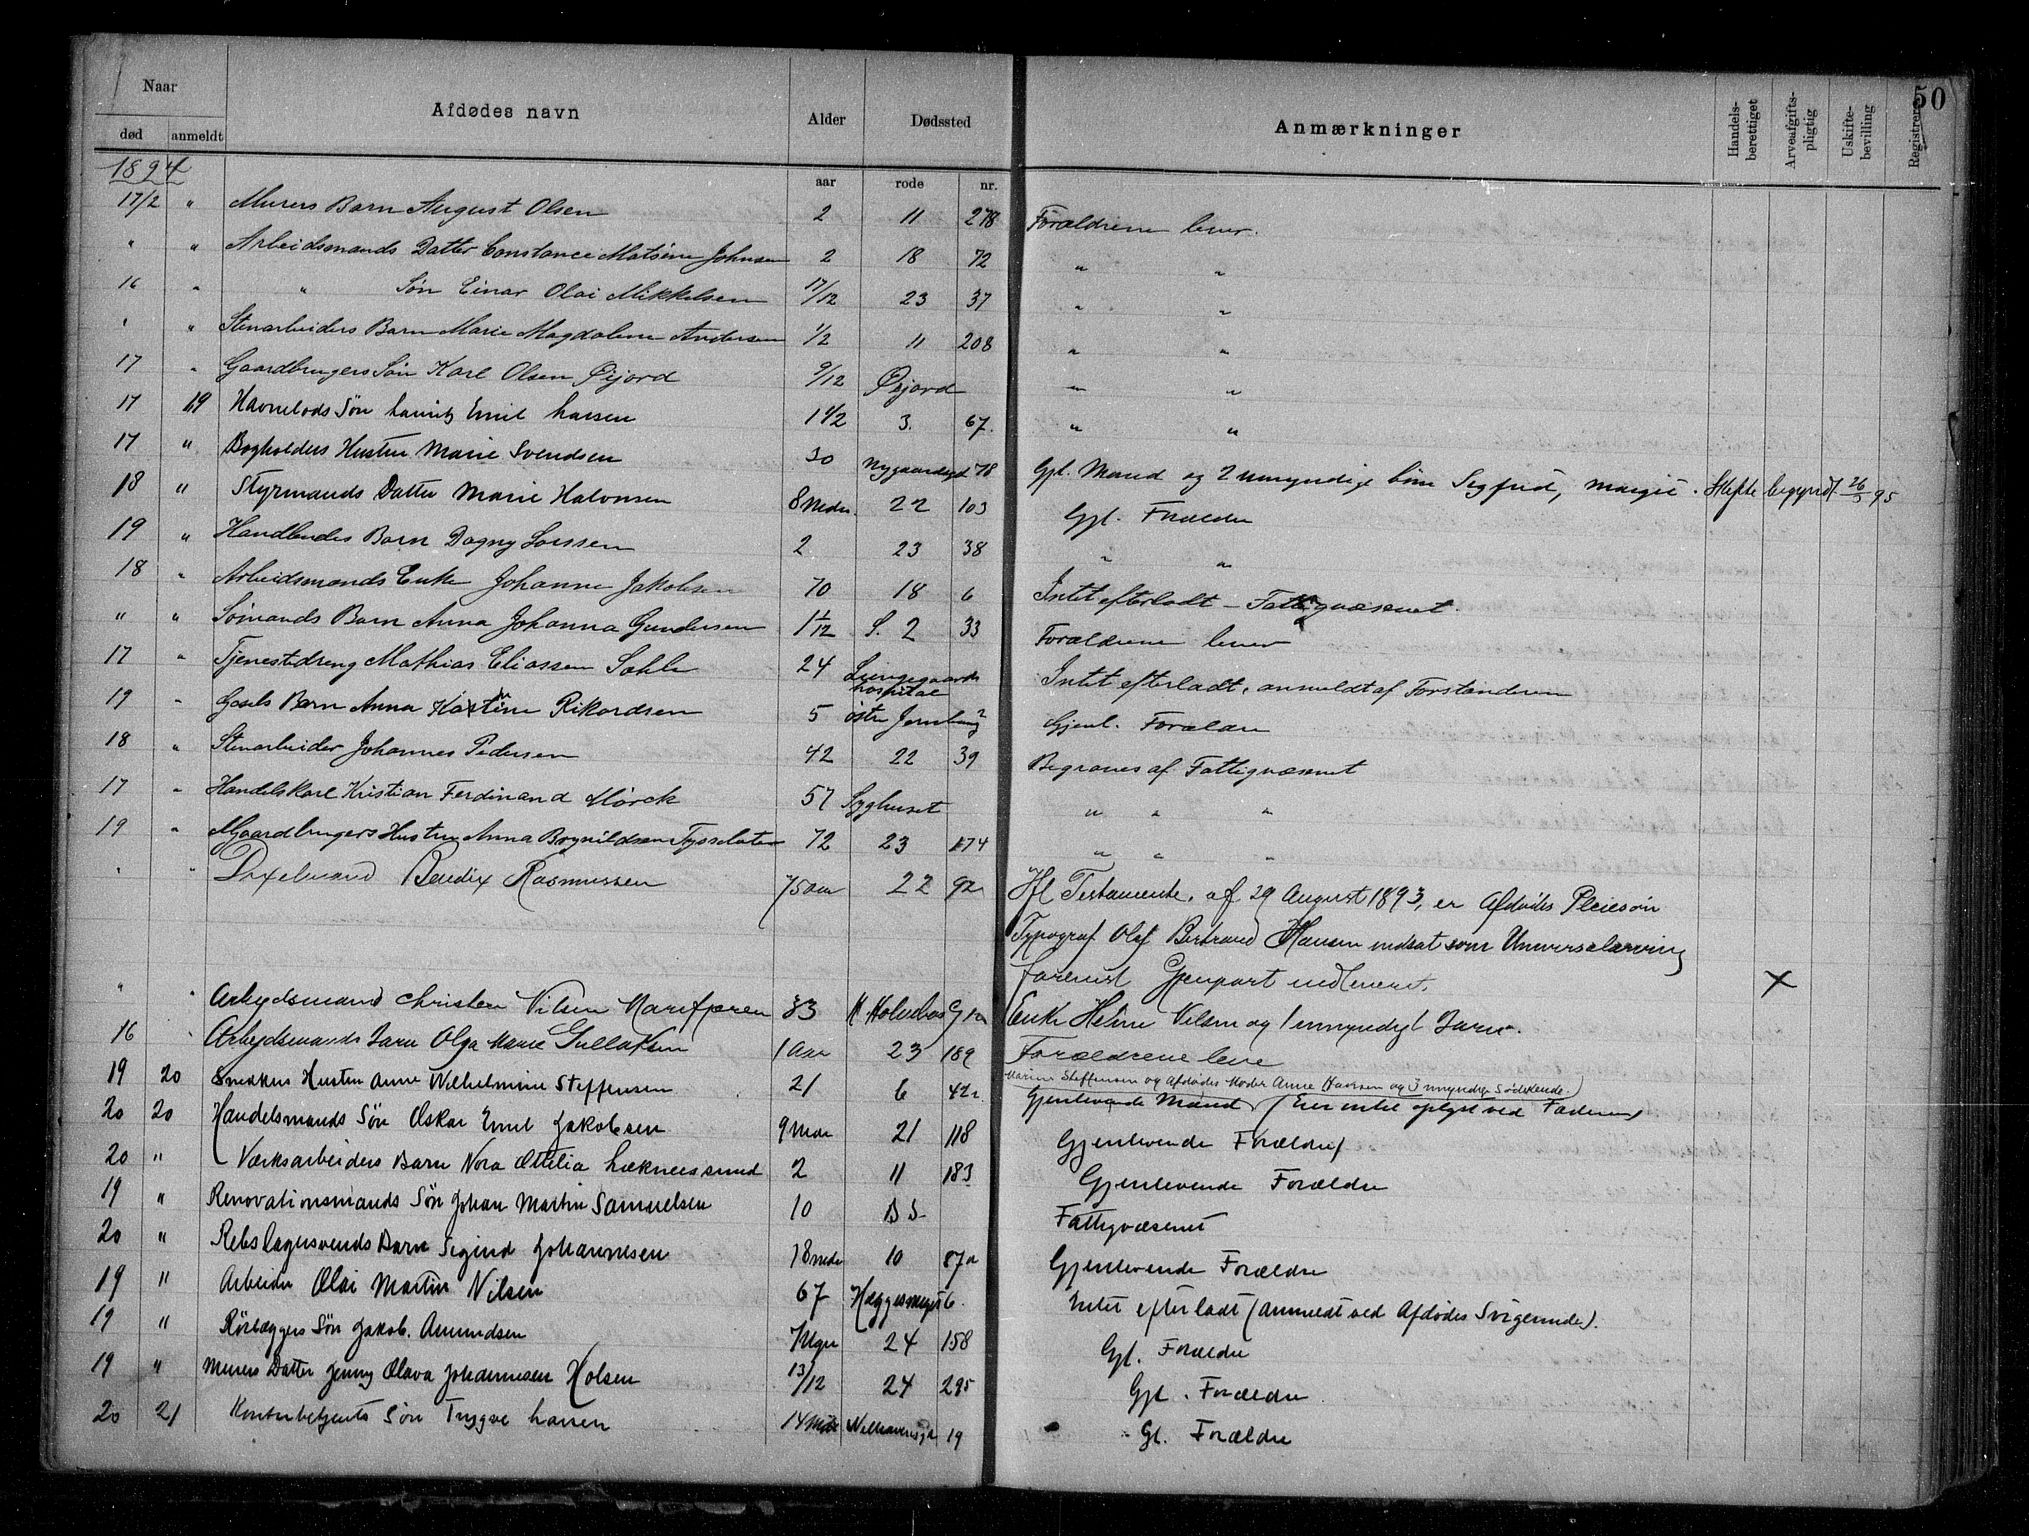 50
Naar Afdødes navn Alder Dødssted Anmærkninger Handels-berettiget Arveafgifts-pligtig Uskifte-bevilling Registreret
død anmeldt aar rode nr.
1894
17/2 " Murers Barn August Olsen 2 11 278 Forældrene lever.
" " Arbeidsmands Datter Constance Matsine Johnsen 2 18 72 " "
16 " " Søn Einar Olai Mikkelsen 17/12 23 37 " "
" " Stenarbeiders Barn Marie Magdalene Andersen 1/2 11 208 " "
17 " Gaardbrugers Søn Karl Olsen Øijord 9/12 Øijord " "
17 19 Havnelods Søn Emil Larsen 1 1/2 3. 67. " "
17 " Bogholders Hustru Marie Svendsen 30 Nygaardsgd 78 Gjl. Mand og 2 umyndige børn Sigfrid, Margit. Skifte begyndt 26/3 95
18 " Styrmands Datter Marie Halvorsen 8 Mdr. 22 103 Gjl. Forældre
19 " Handlendes Barn Dagny Larssen 2 23 38 " "
18 " Arbeidsmands Enke Johanne Jakobsen 70 18 6 Intet efterladt - Fattigvæsenet.
" " Sømands Barn Anna Johanna Gundersen 1 1/12 S. 2 33 Forældrene lever
17 " Tjenestedreng Mathias Eliassen Sahle 24 Lungegaards hospital Intet efterladt, anmeldt af Forstanderen
19 " Gaséls Barn Anna Kristine Rikardsen 5 østre Gjenl. Forældre
18 " Stenarbeider Johannes Pedersen 42 22 39 Begraves af Fattigvæsenet
17 " Handelskarl Kristian Ferdinand Mørck 57 Syghuset " " "
19 " Gaardbrugers Hustru Anna Brynildsen Tysseloten 72 23 174 " " "
" " Dixelmand Bendix Rasmussen 75 aar 22 92a Ifl Testamente af 29 August 1893, er Afdødes Pleiesøn
Typograf Olaf Bertrand Hansen indsat som Universalarving
forevist Gjenpart indleveret. X
" " Arbejdsmand Christen Nilsen Marifjæren 33 Enke Heline Nilsen og 1 umyndigt Barn.
16 " Arbejdsmands Barn Olga Marie Gullaksen 1 Aar 23 189 Forældrene leve
19 20 Snedkers Hustru Anne Wilhelmine Steffensen 21 6 42a Gjenlevende Mand Marius Steffensen og Afdødes Moder Anne Hansen og 3 umyndige Sødskende.
(Eier intet oplyst ved Faderen)
20 20 Handelsmands Søn Oskar Emil Jakobsen 9 Mdr 21 118 Gjenlevende Forældre
20 " Værksarbeiders Barn Nora Ottilia Læknessund 2 11 183 Gjenlevende Forældre
19 " Renovationsmands Søn Johan Martin Samuelsen 10 Fattigvæsenet
20 " Rebslagersvends Barn Sigurd Johannesen 18 mdr 10 87a Gjenlevende Forældre
19 " Arbeider Olai Martin Nilsen 67 Hæggesmuget 6. Intet efterladt (Anmeldt ved Afdødes Svigerinde).
19 " Rørlæggers Søn Jakob Amundsen 7 Uger 24 158 Gjl. Forældre
19 " Murers Datter Jenny Olava Johannesen Holsen 13/12 24 295 Gjl. Forældre
20 21 Kontorbetjents Søn Trygve Larsen 14 Mdr 19 Gl. Forældre